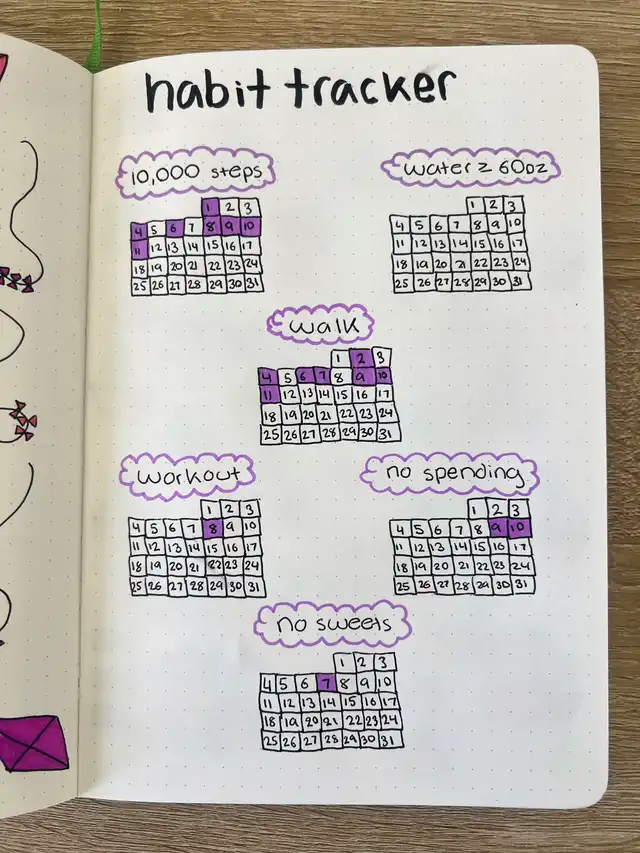 habit tracker
10,000 steps
1 2 3
4 5 6 7 8 9 10
11 12 13 14 15 16 17
18 19 20 21 22 23 24
25 26 27 28 29 30 31
water ≥ 60oz
1 2 3
4 5 6 7 8 9 10
11 12 13 14 15 16 17
18 19 20 21 22 23 24
25 26 27 28 29 30 31
walk
1 2 3
4 5 6 7 8 9 10
11 12 13 14 15 16 17
18 19 20 21 22 23 24
25 26 27 28 29 30 31
workout
1 2 3
4 5 6 7 8 9 10
11 12 13 14 15 16 17
18 19 20 21 22 23 24
25 26 27 28 29 30 31
no spending
1 2 3
4 5 6 7 8 9 10
11 12 13 14 15 16 17
18 19 20 21 22 23 24
25 26 27 28 29 30 31
no sweets
1 2 3
4 5 6 7 8 9 10
11 12 13 14 15 16 17
18 19 20 21 22 23 24
25 26 27 28 29 30 31